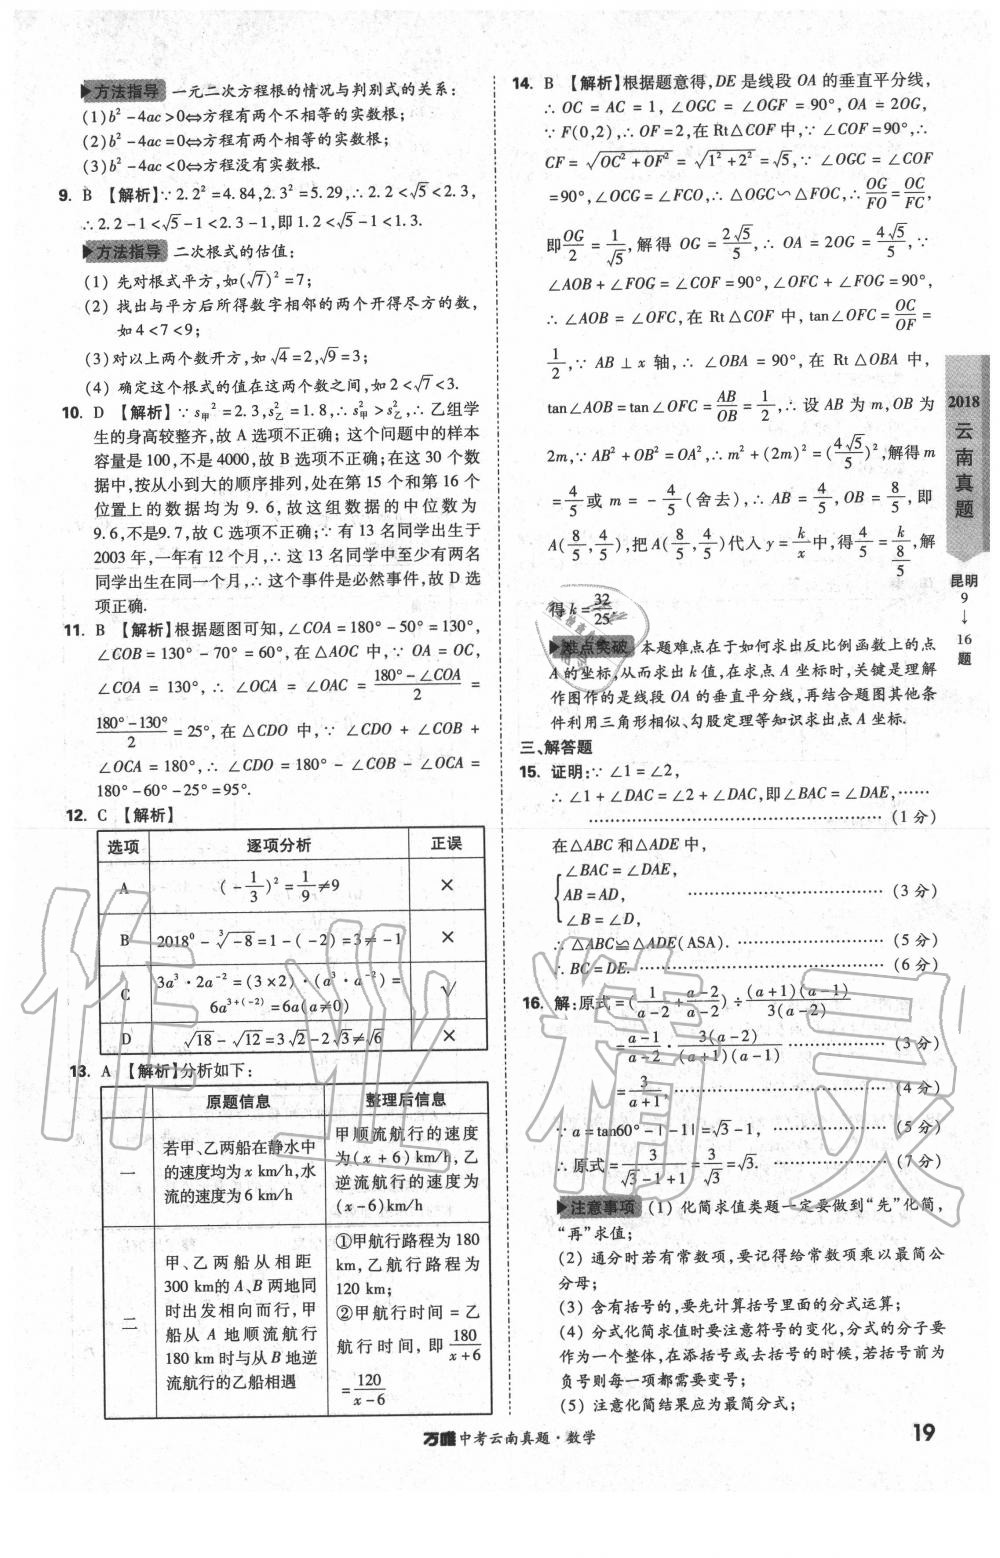 ▶方法指导 一元二次方程根的情况与判别式的关系:
(1)b²-4ac>0⇔方程有两个不相等的实数根;
(2)b²-4ac=0⇔方程有两个相等的实数根;
(3)b²-4ac<0⇔方程没有实数根.
9. B 【解析】∵2.2²=4.84,2.3²=5.29,∴2.2<√5<2.3,
∴2.2-1<√5-1<2.3-1,即1.2<√5-1<1.3.
▶方法指导 二次根式的估值:
(1) 先对根式平方,如(√7)²=7;
(2) 找出与平方后所得数字相邻的两个开得尽方的数,
如4<7<9;
(3)对以上两个数开方,如√4=2,√9=3;
(4) 确定这个根式的值在这两个数之间,如2<√7<3.
10. D 【解析】∵s甲²=2.3,s乙²=1.8,∴s甲²>s乙²,∴乙组学
生的身高较整齐,故A选项不正确;这个问题中的样本
容量是100,不是4000,故B选项不正确;在这30个数
据中,按从小到大的顺序排列,处在第15个和第16个
位置上的数据均为9.6,故这组数据的中位数为
9.6,不是9.7,故C选项不正确;∵有13名同学出生于
2003年,一年有12个月,∴这13名同学中至少有两名
同学出生在同一个月,∴这个事件是必然事件,故D选
项正确.
11. B 【解析】根据题图可知,∠COA=180°-50°=130°,
∠COB=130°-70°=60°,在△AOC中,∵OA=OC,
∠COA=130°,∴∠OCA=∠OAC=(180°-∠COA)/2=
(180°-130°)/2=25°,在△CDO中,∵∠CDO+∠COB+
∠OCA=180°,∴∠CDO=180°-∠COB-∠OCA=
180°-60°-25°=95°.
12. C 【解析】
选项 逐项分析 正误
A (-1/3)²=1/9≠9 ×
B 2018⁰-∛-8=1-(-2)=3≠-1 ×
C 3a³·2a⁻²=(3×2)·(a³·a⁻²)=
6a³⁺⁽⁻²⁾=6a(a≠0) √
D √18-√12=3√2-2√3≠√6 ×
13. A 【解析】分析如下:
原题信息 整理后信息
一 若甲、乙两船在静水中
的速度均为x km/h,水
流的速度为6 km/h
甲顺流航行的速度
为(x+6)km/h,乙
逆流航行的速度为
(x-6)km/h
二 甲、乙两船从相距
300 km的A、B两地同
时出发相向而行,甲
船从A地顺流航行
180 km时与从B地逆
流航行的乙船相遇
①甲航行路程为180
km,乙航行路程为
120 km;
②甲航行时间=乙
航行时间,即180/(x+6)
=120/(x-6)
14. B 【解析】根据题意得,DE是线段OA的垂直平分线,
∴OC=AC=1,∠OGC=∠OGF=90°,OA=2OG,
∵F(0,2),∴OF=2,在Rt△COF中,∵∠COF=90°,∴
CF=√(OC²+OF²)=√(1²+2²)=√5,∵∠OGC=∠COF
=90°,∠OCG=∠FCO,∴△OGC∽△FOC,∴OG/FO=OC/FC,
即OG/2=1/√5,解得OG=2√5/5,∴OA=2OG=4√5/5,∵
∠AOB+∠FOG=∠COF=90°,∠OFC+∠FOG=90°,
∴∠AOB=∠OFC,在Rt△COF中,tan∠OFC=OC/OF=
1/2,∵AB⊥x轴,∴∠OBA=90°,在Rt△OBA中,
tan∠AOB=tan∠OFC=AB/OB=1/2,∴设AB为m,OB为
2m,∵AB²+OB²=OA²,∴m²+(2m)²=(4√5/5)²,解得m
=4/5或m=-4/5(舍去),∴AB=4/5,OB=8/5,即
A(8/5,4/5),把A(8/5,4/5)代入y=k/x中,得4/5=k/(8/5),解
得k=32/25.
▶难点突破 本题难点在于如何求出反比例函数上的点
A的坐标,从而求出k值,在求点A坐标时,关键是理解
作图作的是线段OA的垂直平分线,再结合题图其他条
件利用三角形相似、勾股定理等知识求出点A坐标.
三、解答题
15. 证明:∵∠1=∠2,
∴∠1+∠DAC=∠2+∠DAC,即∠BAC=∠DAE,……
……………………………………(1分)
在△ABC和△ADE中,
{∠BAC=∠DAE,
AB=AD, ……………………(3分)
∠B=∠D,
∴△ABC≌△ADE(ASA).………………(5分)
∴BC=DE.……………………………(6分)
16. 解:原式=(1/(a-2)+(a-2)/(a-2))÷(a+1)(a-1)/3(a-2)
=(a-1)/(a-2)·3(a-2)/(a+1)(a-1) ……………(3分)
=3/(a+1),……………………………(4分)
∵a=tan60°-|-1|=√3-1,……………(5分)
∴原式=3/(√3-1+1)=3/√3=√3.……………(7分)
▶注意事项 (1) 化简求值类题一定要做到“先”化简,
“再”求值;
(2) 通分时若有常数项,要记得给常数项乘以最简公
分母;
(3) 含有括号的,要先计算括号里面的分式运算;
(4) 分式化简求值时要注意符号的变化,分式的分子要
作为一个整体,在添括号或去括号的时候,若括号前为
负号则每一项都需要变号;
(5) 注意化简结果应为最简分式.
2018
云南真题
昆明
9
↓
16
题
万唯中考云南真题·数学
19
作业精灵